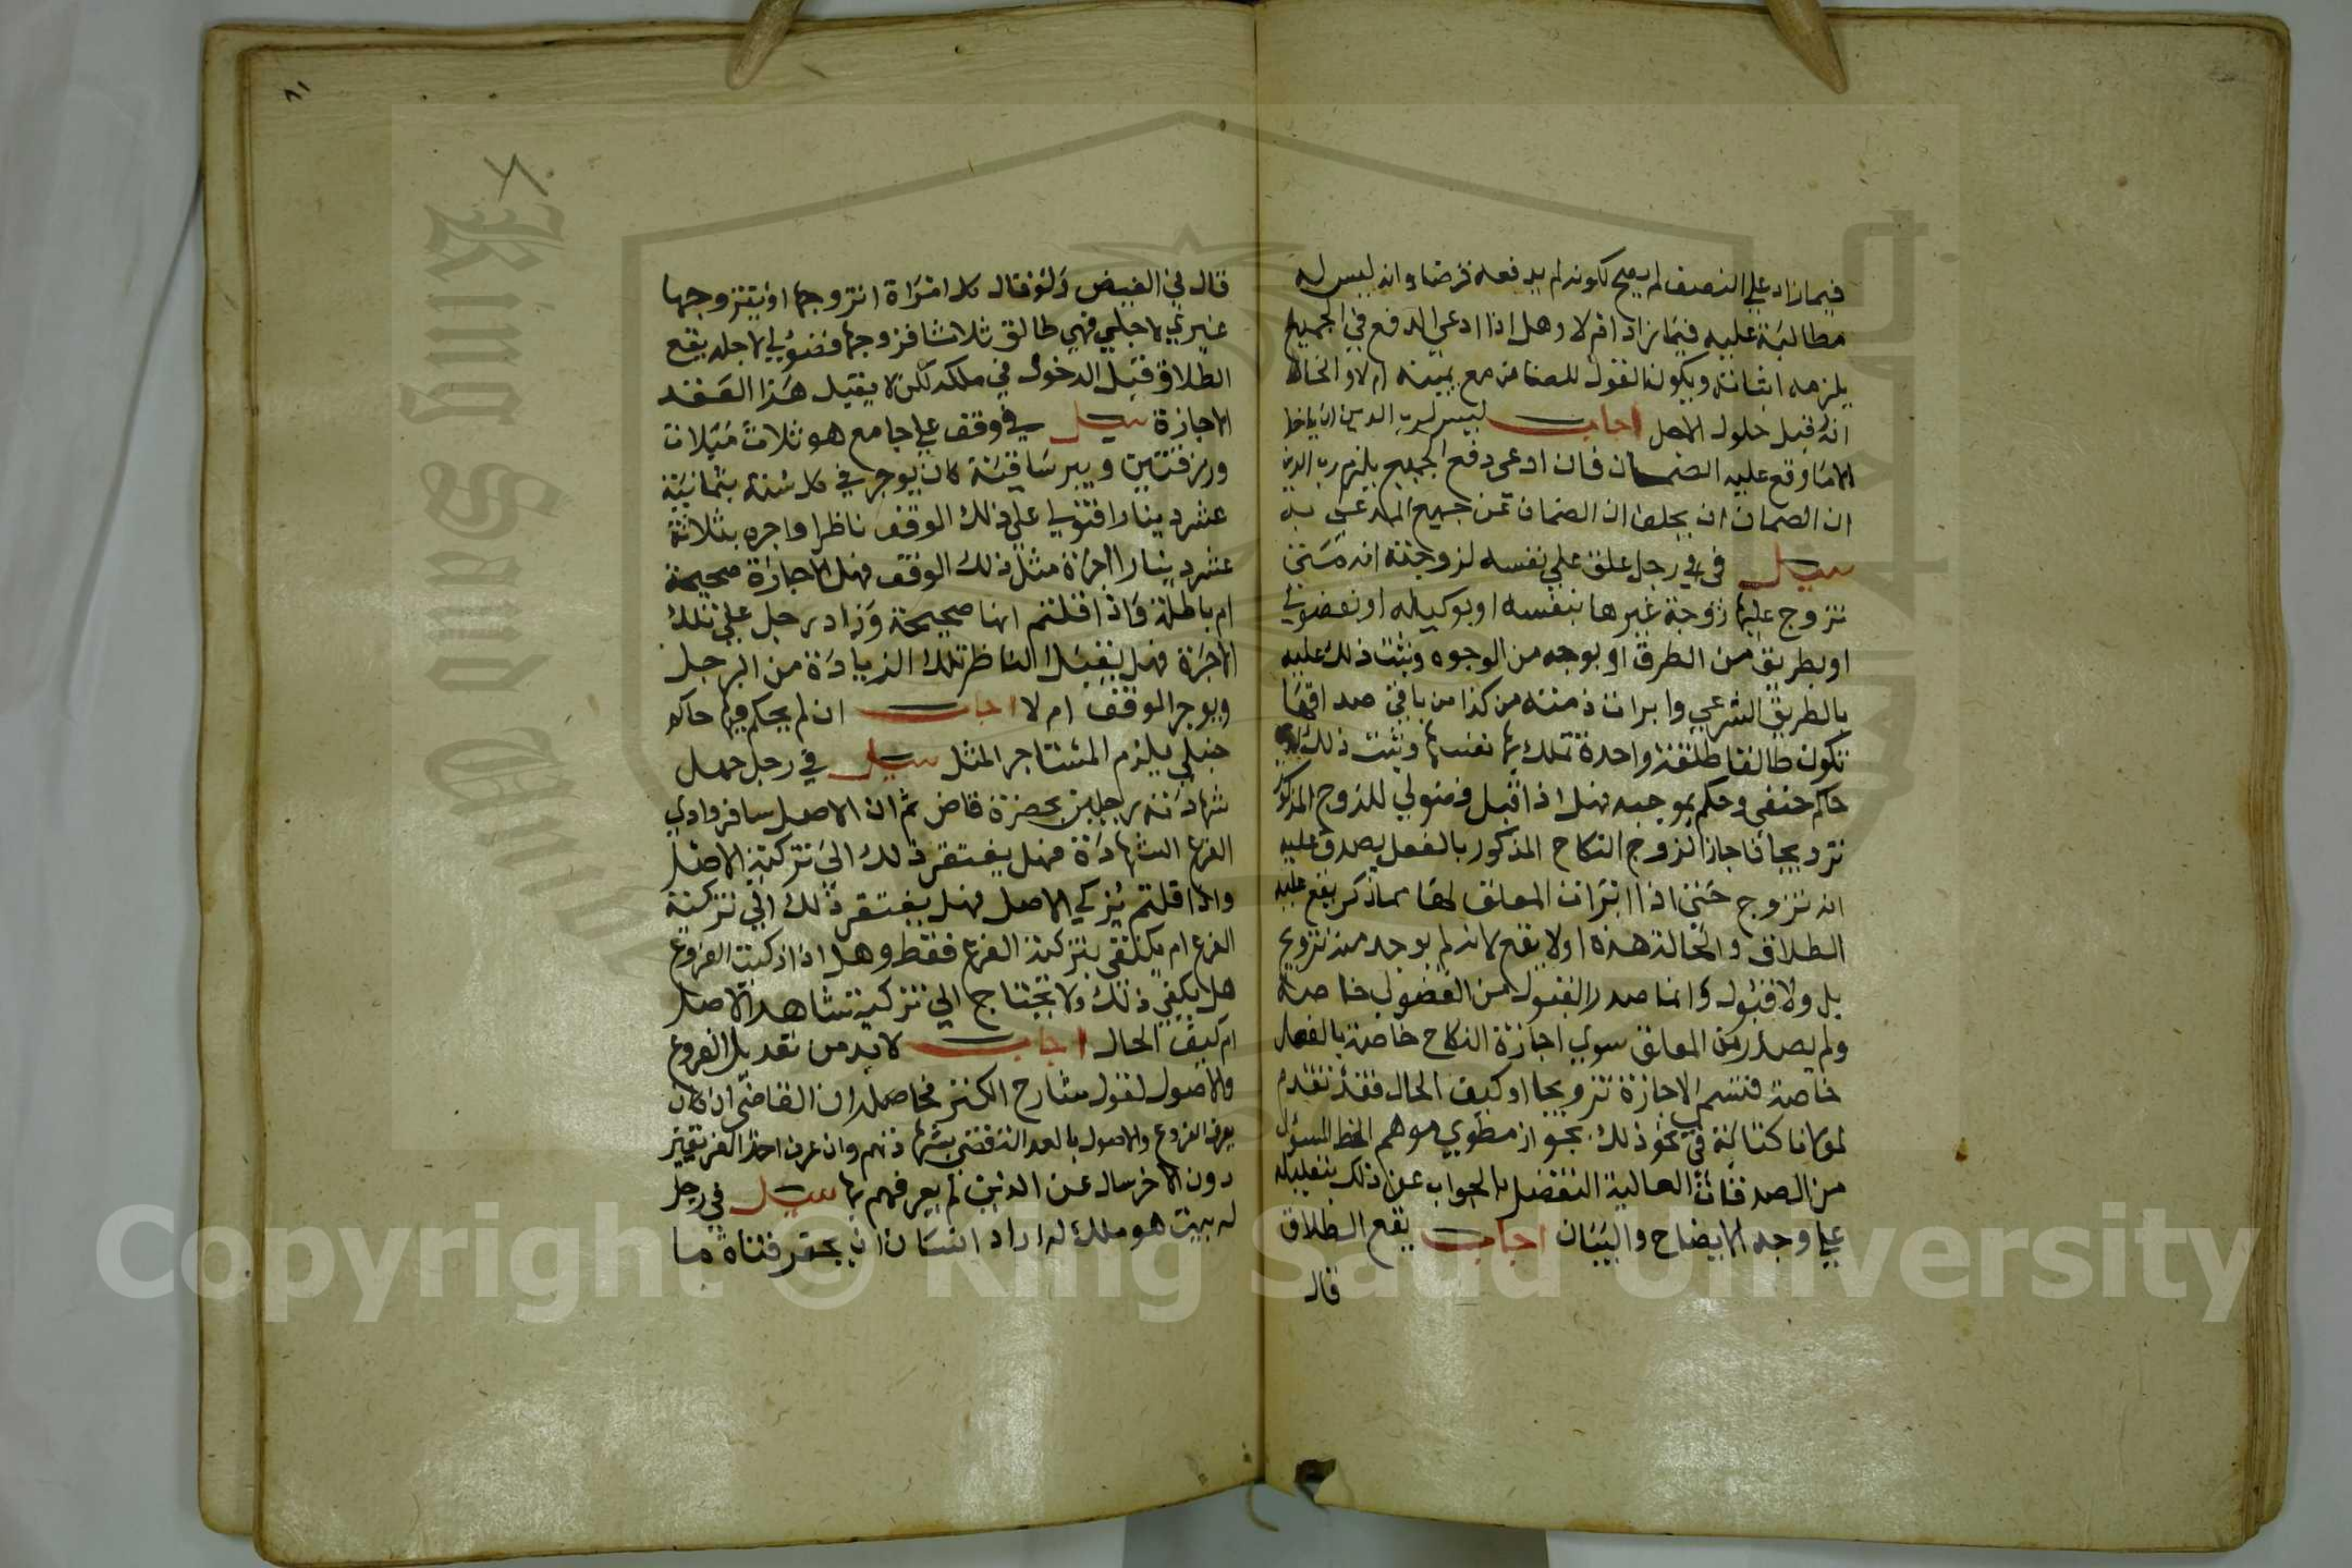 فيما زاد علي النصف لم يصح لكونه لم يدفعه قرضا وانه ليس له
مطالبة عليه فيما زاد ام لا وهل اذا ادعي الدفع في الجميع
يلزمه اثباته ويكون القول للضامن مع يمينه ام لا والحالة
انه قبل حلول الاجل اجاب ليس لرب الدين ان ياخذ
الا ما وقع عليه الضمان فان ادعى دفع الجميع يلزم رب الدين
ان الضمان ان يحلف ان الضمان عن جميع المدعى به
سيل في رجل علق علي نفسه لزوجته انه متى
تزوج عليها زوجة غيرها بنفسه او بوكيله او بفضولي
او بطريق من الطرق او بوجه من الوجوه وثبت ذلك عليه
بالطريق الشرعي وابرات ذمته من كذا من باقي صداقها
تكون طالقا طلقة واحدة تملك بها نفسها وثبت ذلك لدي
حاكم حنفي وحكم بموجبه فهل اذا قبل فضولي للزوج المذكور
تزويجا فاجاز الزوج النكاح المذكور بالفعل يصدق عليه
انه تزوج حتى اذا ابرات المعلق لها مما ذكر يقع عليه
الطلاق والحالة هذه اولا يقع لانه لم يوجد منه تزويج
بل ولا قبول وانما صدر القبول من الفضولي خاصة
ولم يصدر من المعلق سوي اجازة النكاح خاصة بالفعل
خاصة فتسم الاجازة تزويجا او كيف الحال فقد تقدم
لمولانا كتابة في نحو ذلك بجواز مطوي موهم الخط المسؤل
من الصدقات العالية التفضل بالجواب عن ذلك بتعليله
علي وجه الايضاح والبيان اجاب يقع الطلاق
قال
٨١
قال في الفيض ولو قال كل امراة اتزوجها او يتزوجها
غيري لاجلي فهي طالق ثلاثا فزوجها فضولي لاجله يقع
الطلاق قبل الدخول في ملكه لكن لا يقبل هذا العقد
الاجازة سيل في وقف علي جامع هو ثلاث
وبير ساقية كان يوجر في كل سنة بثمانية
عشر دينارا فتولي علي ذلك الوقف ناظرا واجره بثلاثة
عشر دينارا اجرة مثل ذلك الوقف فهل الاجارة صحيحة
ام باطلة فاذا قلتم انها صحيحة وزاد رجل علي تلك
الاجرة فهل يقبل الناظر تلك الزيادة من الرجل
ويوجر الموقف ام لا اجاب ان لم يحكم فيها حاكم
حنبلي يلزم المستاجر المثل سيل في رجل حمل
شهادته رجلين بحضرة قاض ثم ان الاصل سافر وادي
الفرع الشهادة فهل يفتقر ذلك الي تزكية الاصل
واذا قلتم يزكي الاصل فهل يفتقر ذلك الي تزكية
الفرع ام يكتفي بتزكية الفرع فقط وهل اذا زكيت الفروع
هل يكفي ذلك ولا يحتاج الي تزكية شاهد الاصل
ام كيف الحال اجاب لا بد من تعديل الفروع
والاصول لقول شارح الكنز فحاصله ان القاضي ان كان
يعرف الفروع والاصول بالعدالة قضى بشهادتهم وان عرف احد الفريقين
دون الاخر سال عن الذين لم يعرفهم بها سيل في رجل
له بيت هو ملك له اراد انسان ان يحفر قناة ما
Copyright © King Saud University